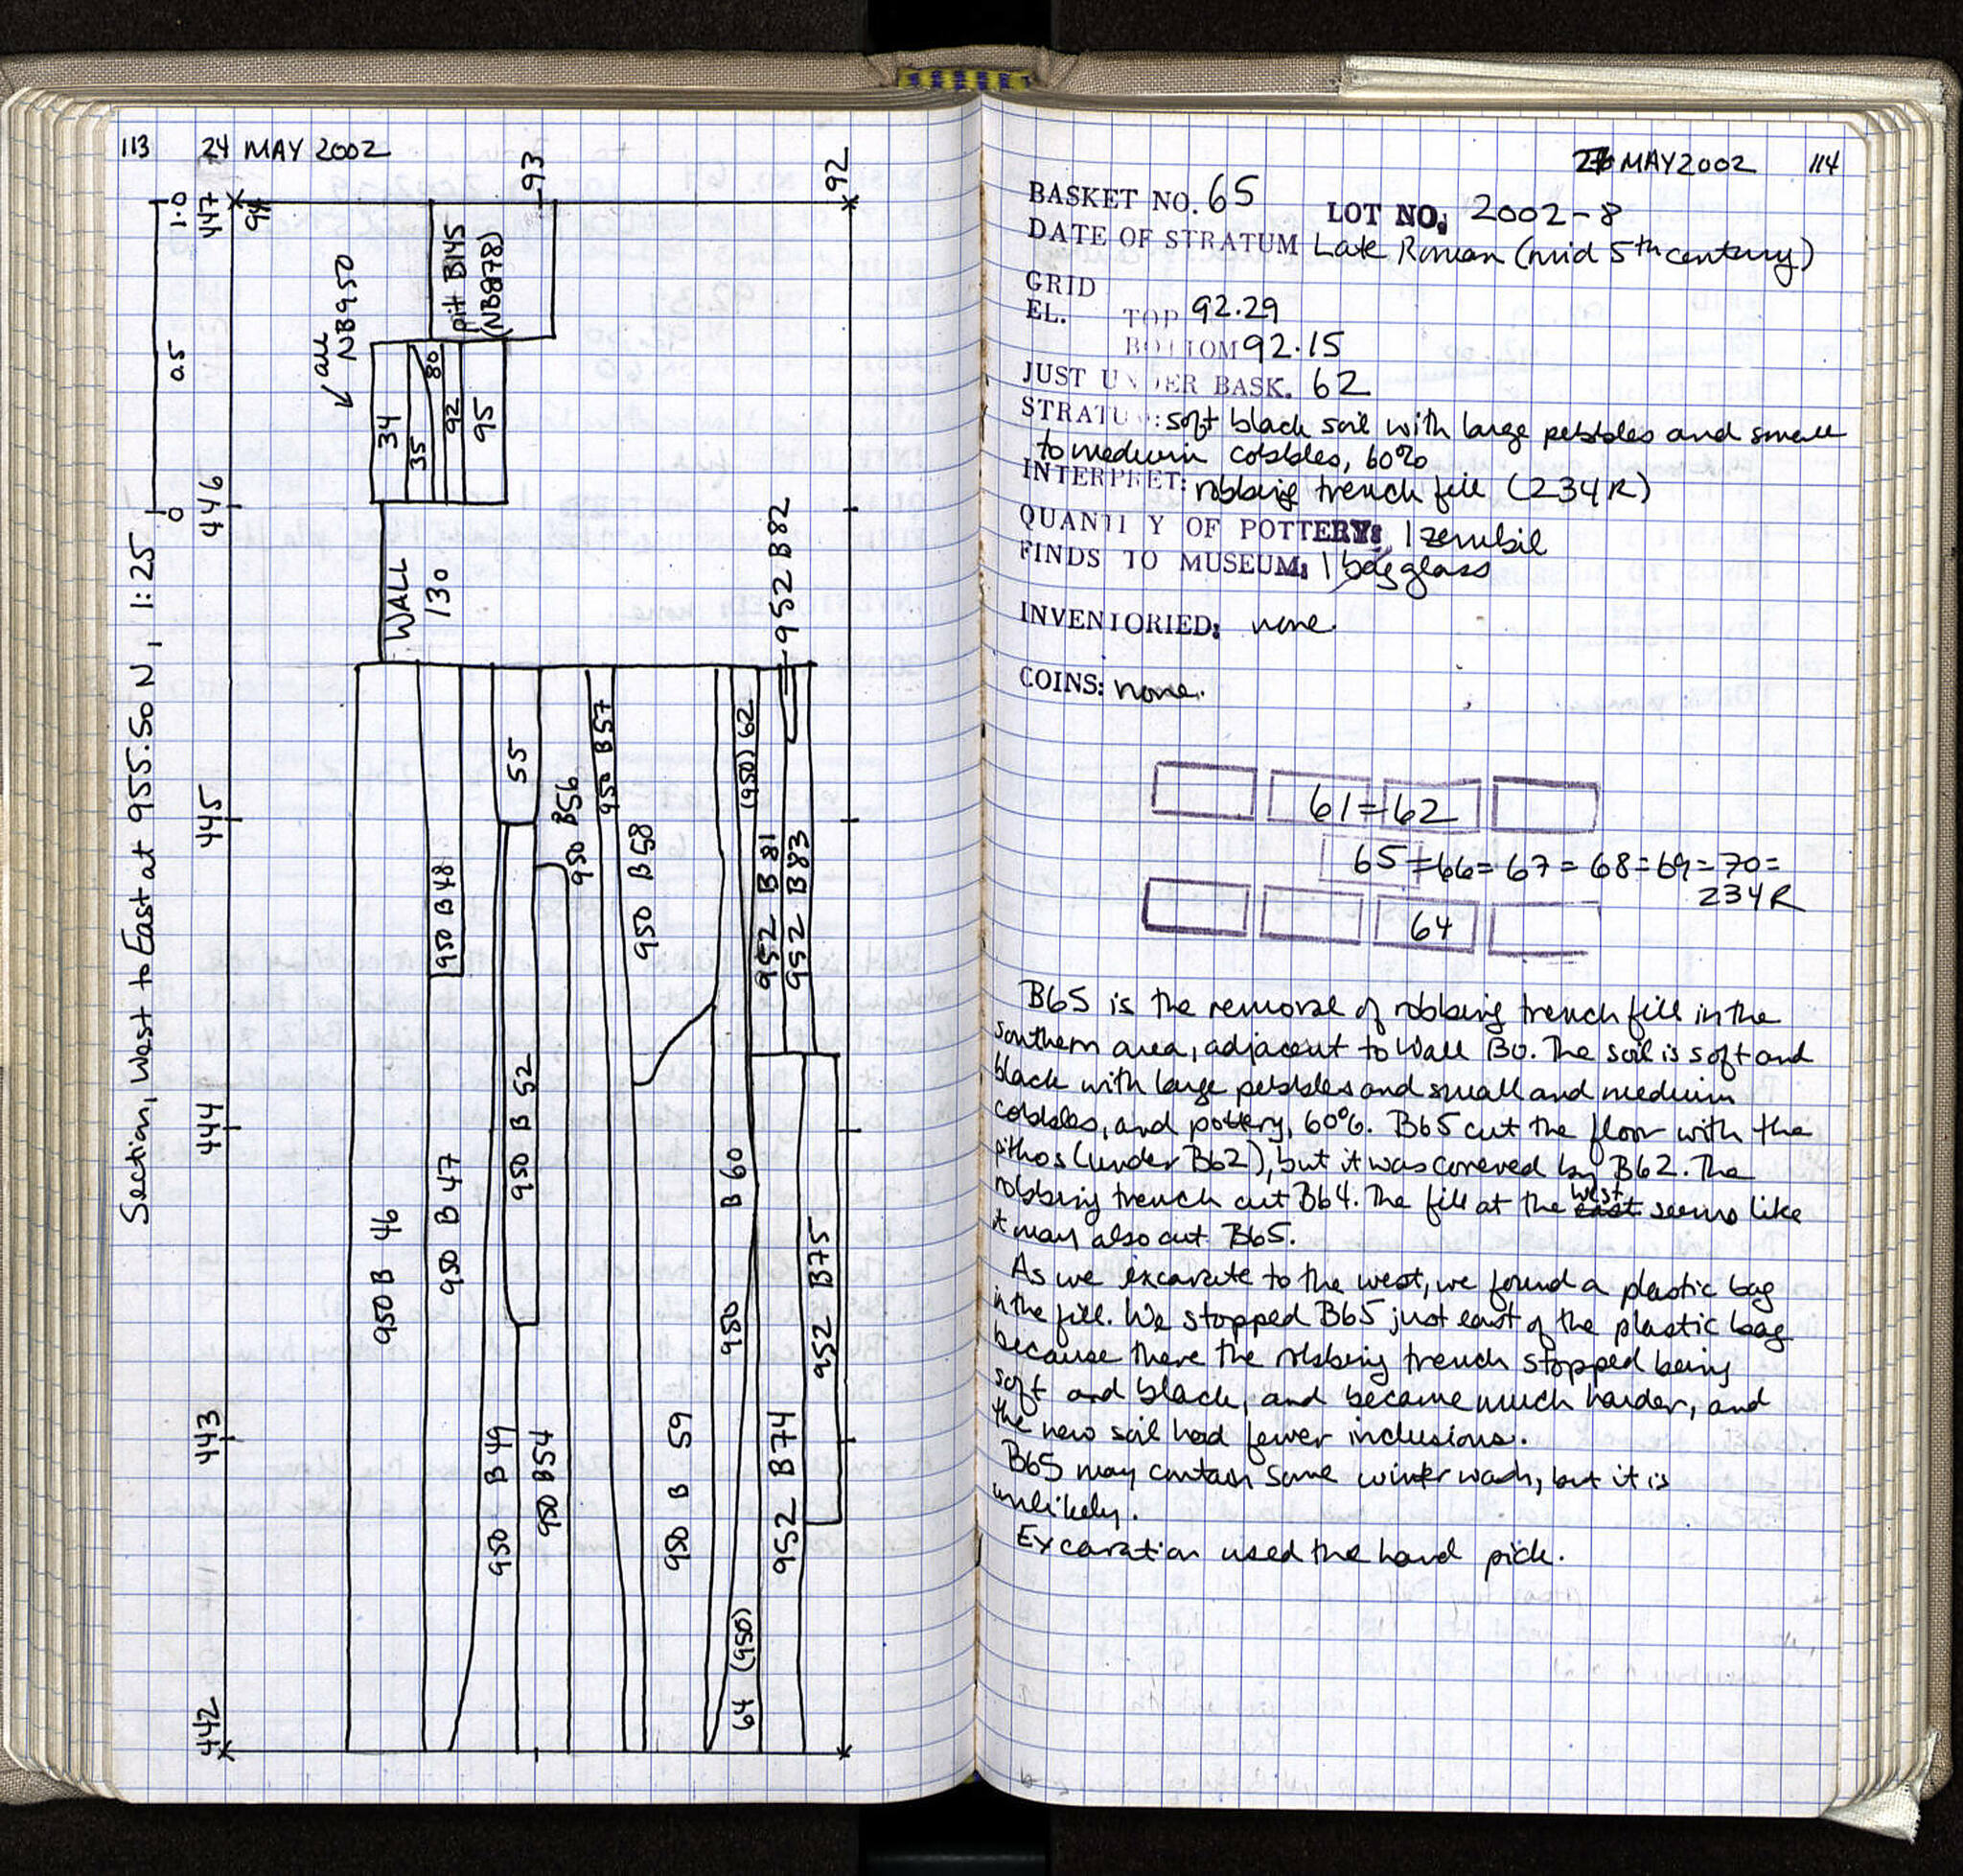 113 24 MAY 2002
Section, West to East at 955.50 N, 1:25
0 0.5 1.0
442 443 444 445 446 447
94
93
92
↙ all NB950
34
35
80
92
95
pit B145
(NB878)
WALL
130
952 B82
55
950 B56
950 B57
(950) 62
950
950 B58
952 B81
952 B83
950 B48
950 B52
950 B 47
950 B 46
950 B 60
952 B75
950 B 49
950 B54
950 B 59
952 B74
64 (950)
MAY 2002 114
BASKET NO. 65 LOT NO. 2002-8
DATE OF STRATUM Late Roman (mid 5th century)
GRID
EL. TOP 92.29
BOTTOM 92.15
JUST UNDER BASK. 62
STRATUM: soft black soil with large pebbles and small
to medium cobbles, 60%
INTERPRET: robbing trench fill (234R)
QUANTITY OF POTTERY: 1 zembil
FINDS TO MUSEUM: 1 bag glass
INVENTORIED: none
COINS: none.
61=62
65=66=67=68=69=70=
234R
64
B65 is the removal of robbing trench fill in the
southern area, adjacent to Wall 130. The soil is soft and
black with large pebbles and small and medium
cobbles, and pottery, 60%. B65 cut the floor with the
pithos (under B62), but it was covered by B62. The
robbing trench cut B64. The fill at the east west seems like
it may also cut B65.
As we excavate to the west, we found a plastic bag
in the fill. We stopped B65 just east of the plastic bag
because there the robbing trench stopped being
soft and black, and became much harder, and
the new soil had fewer inclusions.
B65 may contain some winter wash, but it is
unlikely.
Excavation used the hand pick.